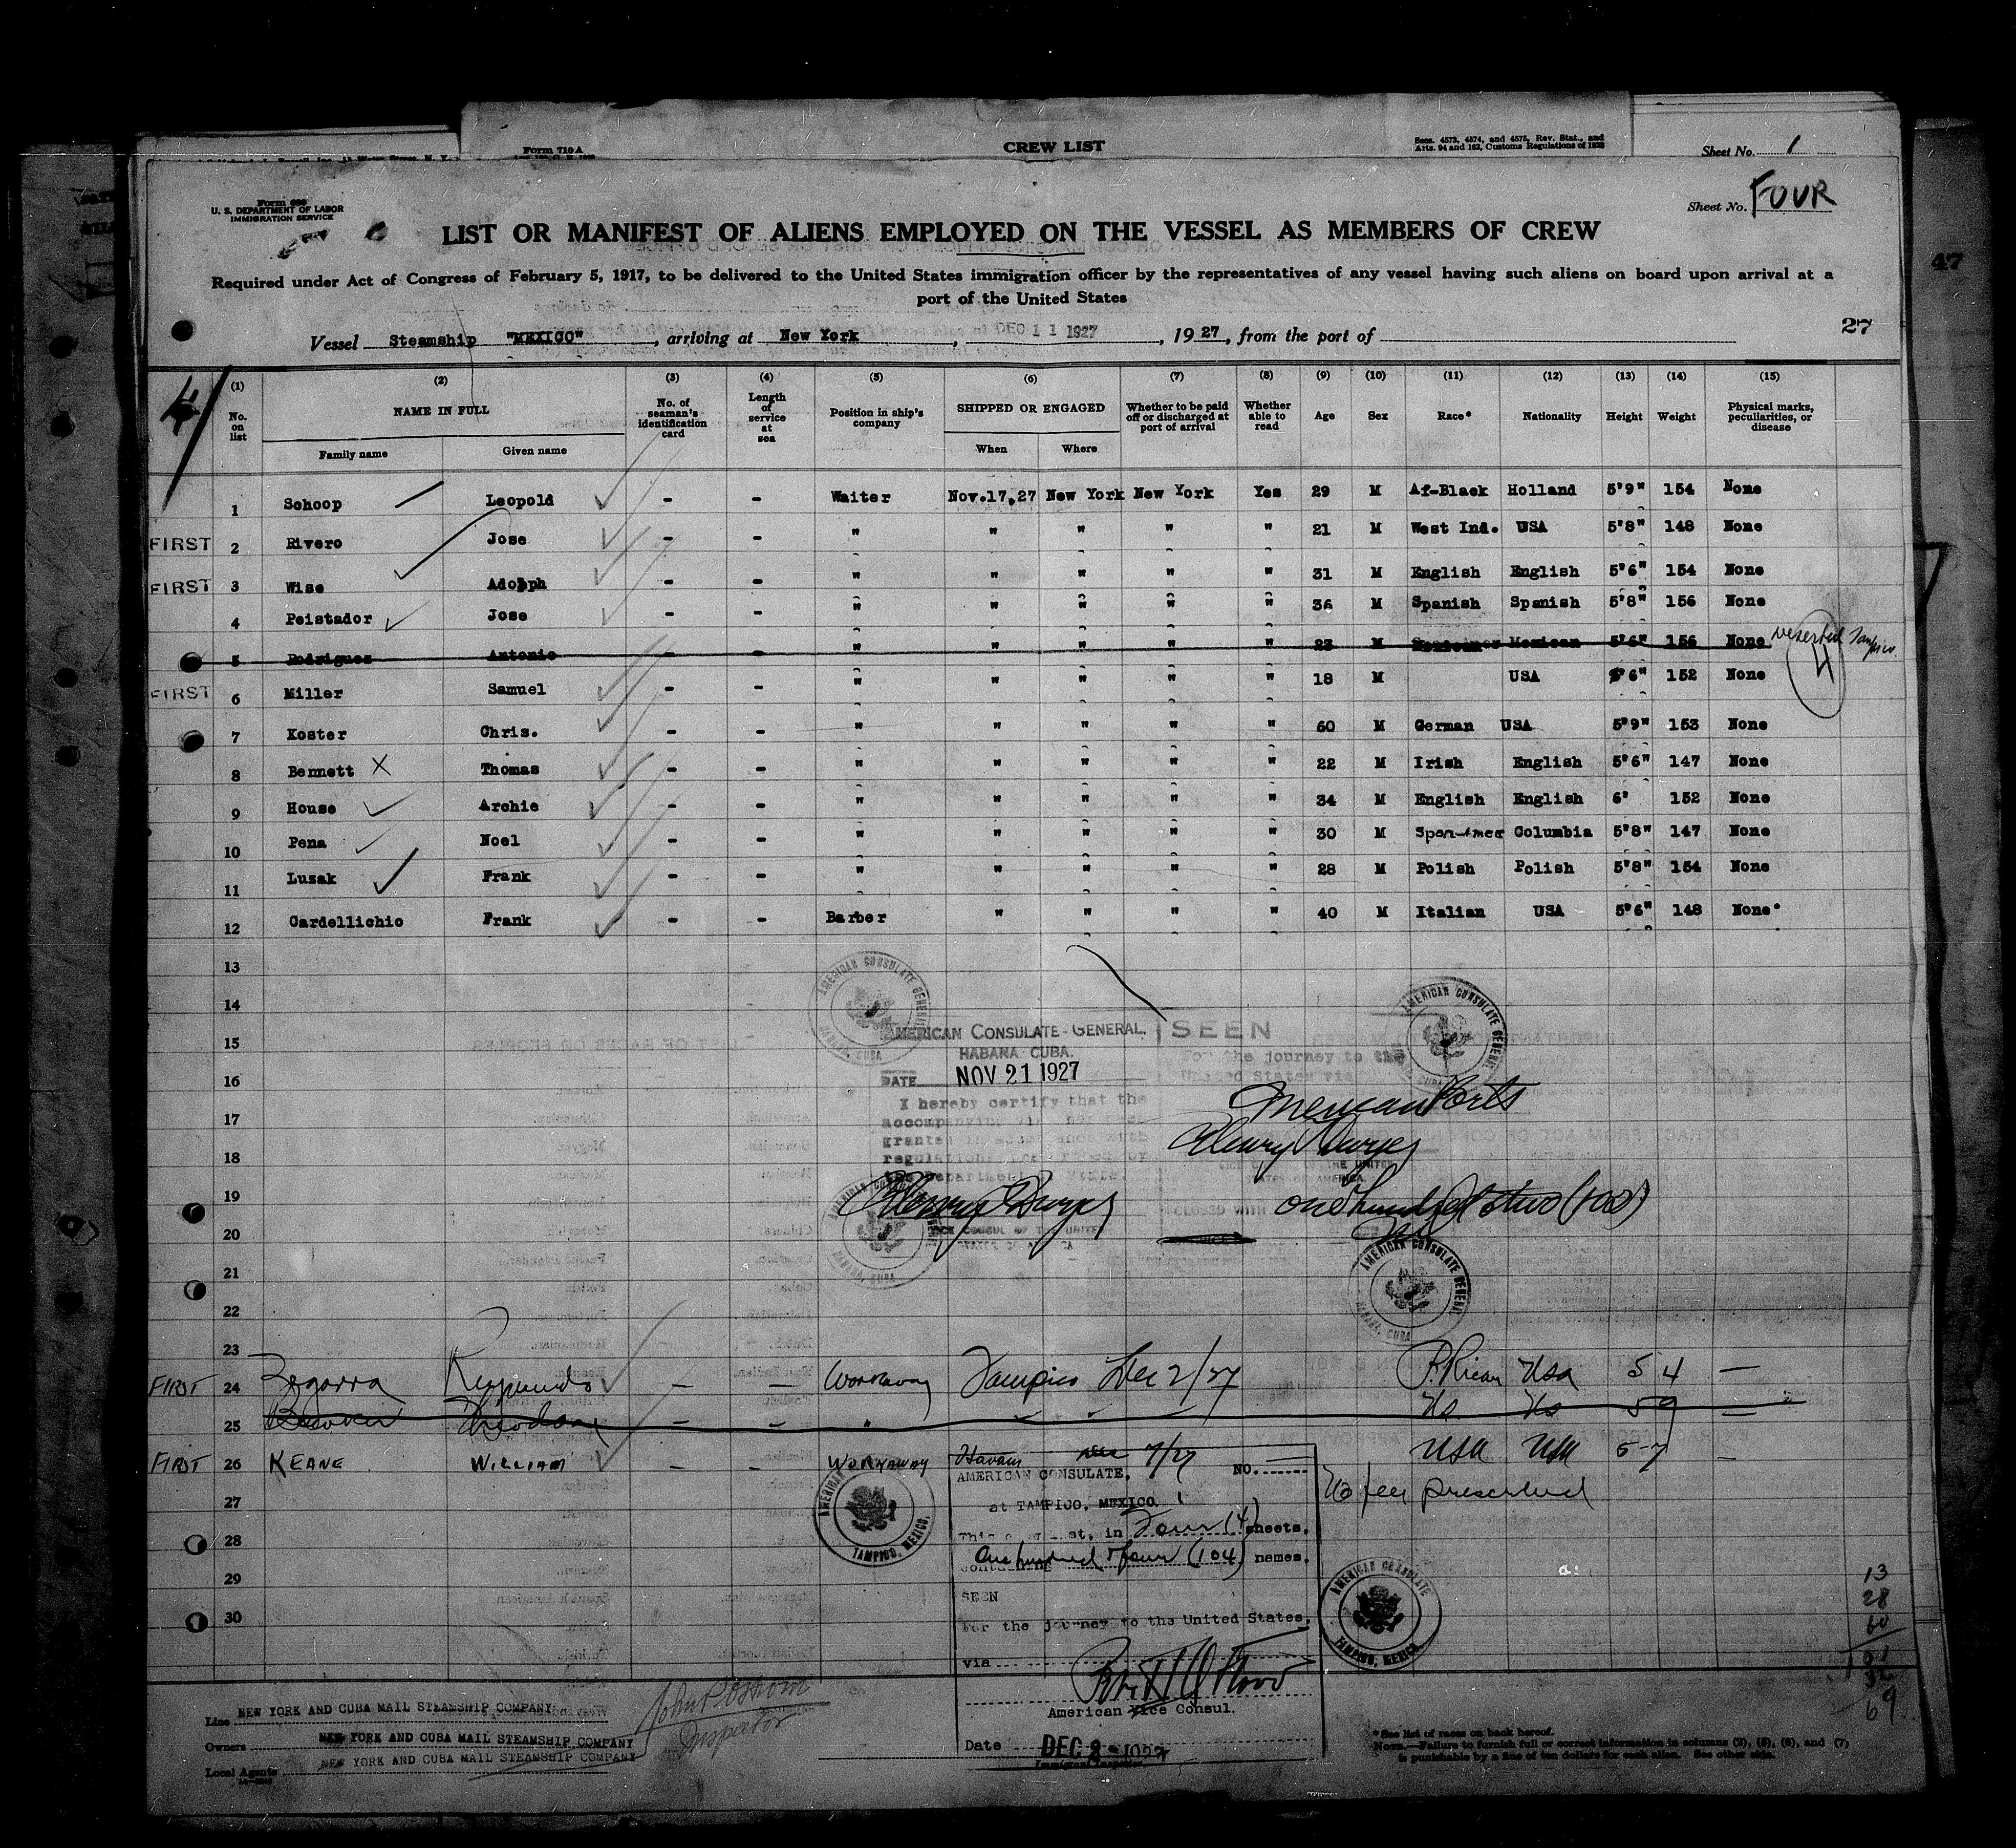 Form 710 A
CREW LIST
Secs. 4573, 4574, and 4575, Rev. Stat., and
Arts. 94 and 162, Customs Regulations of 1923
Sheet No. 1
U. S. DEPARTMENT OF LABOR
IMMIGRATION SERVICE
Sheet No. FOUR
LIST OR MANIFEST OF ALIENS EMPLOYED ON THE VESSEL AS MEMBERS OF CREW
47
Required under Act of Congress of February 5, 1917, to be delivered to the United States immigration officer by the representatives of any vessel having such aliens on board upon arrival at a
port of the United States
27
Vessel Steamship "MEXICO", arriving at New York, DEC 11 1927, 1927, from the port of
4
(1) (2) (3) (4) (5) (6) (7) (8) (9) (10) (11) (12) (13) (14) (15)
No. on list NAME IN FULL No. of seaman's identification card Length of service at sea Position in ship's company SHIPPED OR ENGAGED Whether to be paid off or discharged at port of arrival Whether able to read Age Sex Race* Nationality Height Weight Physical marks, peculiarities, or disease
Family name Given name When Where
1 Schoop Leopold - - Waiter Nov.17,27 New York New York Yes 29 M Af-Black Holland 5'9" 154 None
FIRST 2 Rivero Jose - - " " " " " 21 M West Ind. USA 5'8" 148 None
FIRST 3 Wise Adolph - - " " " " " 31 M English English 5'6" 154 None
4 Peistador Jose - - " " " " " 36 M Spanish Spanish 5'8" 156 None
5 Rodriguez Antonio - - " " " " " 23 M Mexican 5'6" 156 None deserted Tampico.
4
FIRST 6 Miller Samuel - - " " " " " 18 M USA 5'6" 152 None
7 Koster Chris. - - " " " " " 60 M German USA 5'9" 153 None
8 Bennett X Thomas - - " " " " " 22 M Irish English 5'6" 147 None
9 House Archie - - " " " " " 34 M English English 6' 152 None
10 Pena Noel - - " " " " " 30 M Span-Amer Columbia 5'8" 147 None
11 Luzak Frank - - " " " " " 28 M Polish Polish 5'8" 154 None
12 Cardellichio Frank - - Barber " " " " 40 M Italian USA 5'6" 148 None
13
14
15
16
17
18
19
20
21
22
23
AMERICAN CONSULATE GENERAL
HABANA, CUBA
AMERICAN CONSULATE GENERAL
HABANA, CUBA
AMERICAN CONSULATE-GENERAL.
HABANA CUBA.
DATE NOV 21 1927
I hereby certify that the
accompanying
granted with
regulations by
the Department of State.
Henry Dwyer
VICE CONSUL OF THE UNITED
SEEN
For the journey to the
United States via
American Ports
Henry Dwyer
OF THE UNITED
STATES OF AMERICA.
one hundred & two (102)
AMERICAN CONSULATE GENERAL
HABANA, CUBA
AMERICAN CONSULATE GENERAL
HABANA, CUBA
FIRST 24 Zegarra - - Workaway Tampico Dec 2/27 P. Rican Usa 5 4 -
25 Theodore - - " Us Us 5 9 -
FIRST 26 KEANE WILLIAM - - WORKAWAY Havana Dec 7/27 USA USA 5-7 -
27
28
29
30
AMERICAN CONSULATE
TAMPICO, MEXICO.
AMERICAN CONSULATE, NO.
at TAMPICO, MEXICO.
This list, in Four (4) sheets,
containing One hundred & four (104) names.
SEEN
For the journey to the United States,
via
American Vice Consul.
Date DEC 2 - 1927
Immigrant Inspector
No fee prescribed
AMERICAN CONSULATE
TAMPICO, MEXICO.
13
28
60
69
Line NEW YORK AND CUBA MAIL STEAMSHIP COMPANY
Owners NEW YORK AND CUBA MAIL STEAMSHIP COMPANY
Local Agents NEW YORK AND CUBA MAIL STEAMSHIP COMPANY
Inspector
*See list of races on back hereof.
NOTE.—Failure to furnish full or correct information in columns (2), (5), (6), and (7)
is punishable by a fine of ten dollars for each alien. See other side.